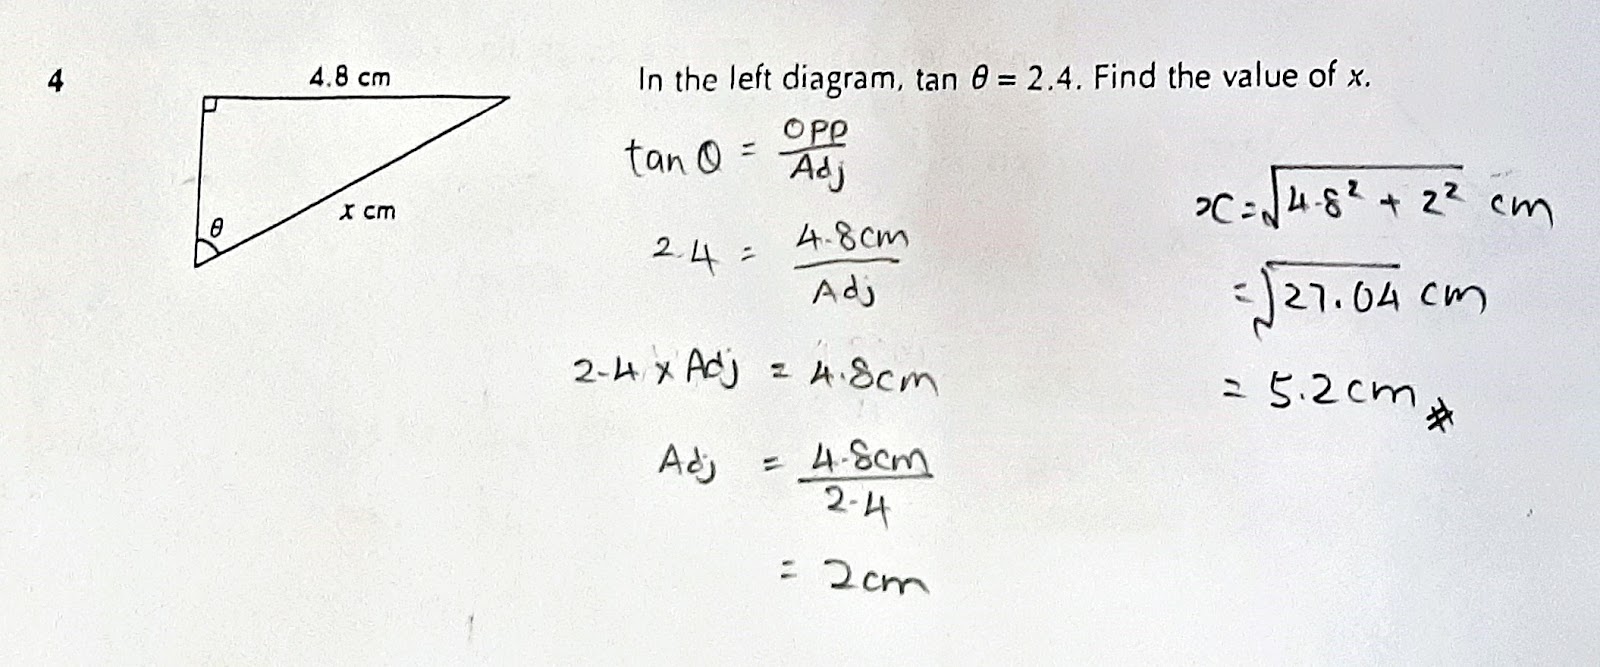 4
4.8 cm
θ
x cm
In the left diagram, tan θ = 2.4. Find the value of x.
tan θ = opp / Adj
2.4 = 4.8cm / Adj
2.4 x Adj = 4.8cm
Adj = 4.8cm / 2.4
= 2cm
x = √4.8² + 2² cm
= √27.04 cm
= 5.2cm